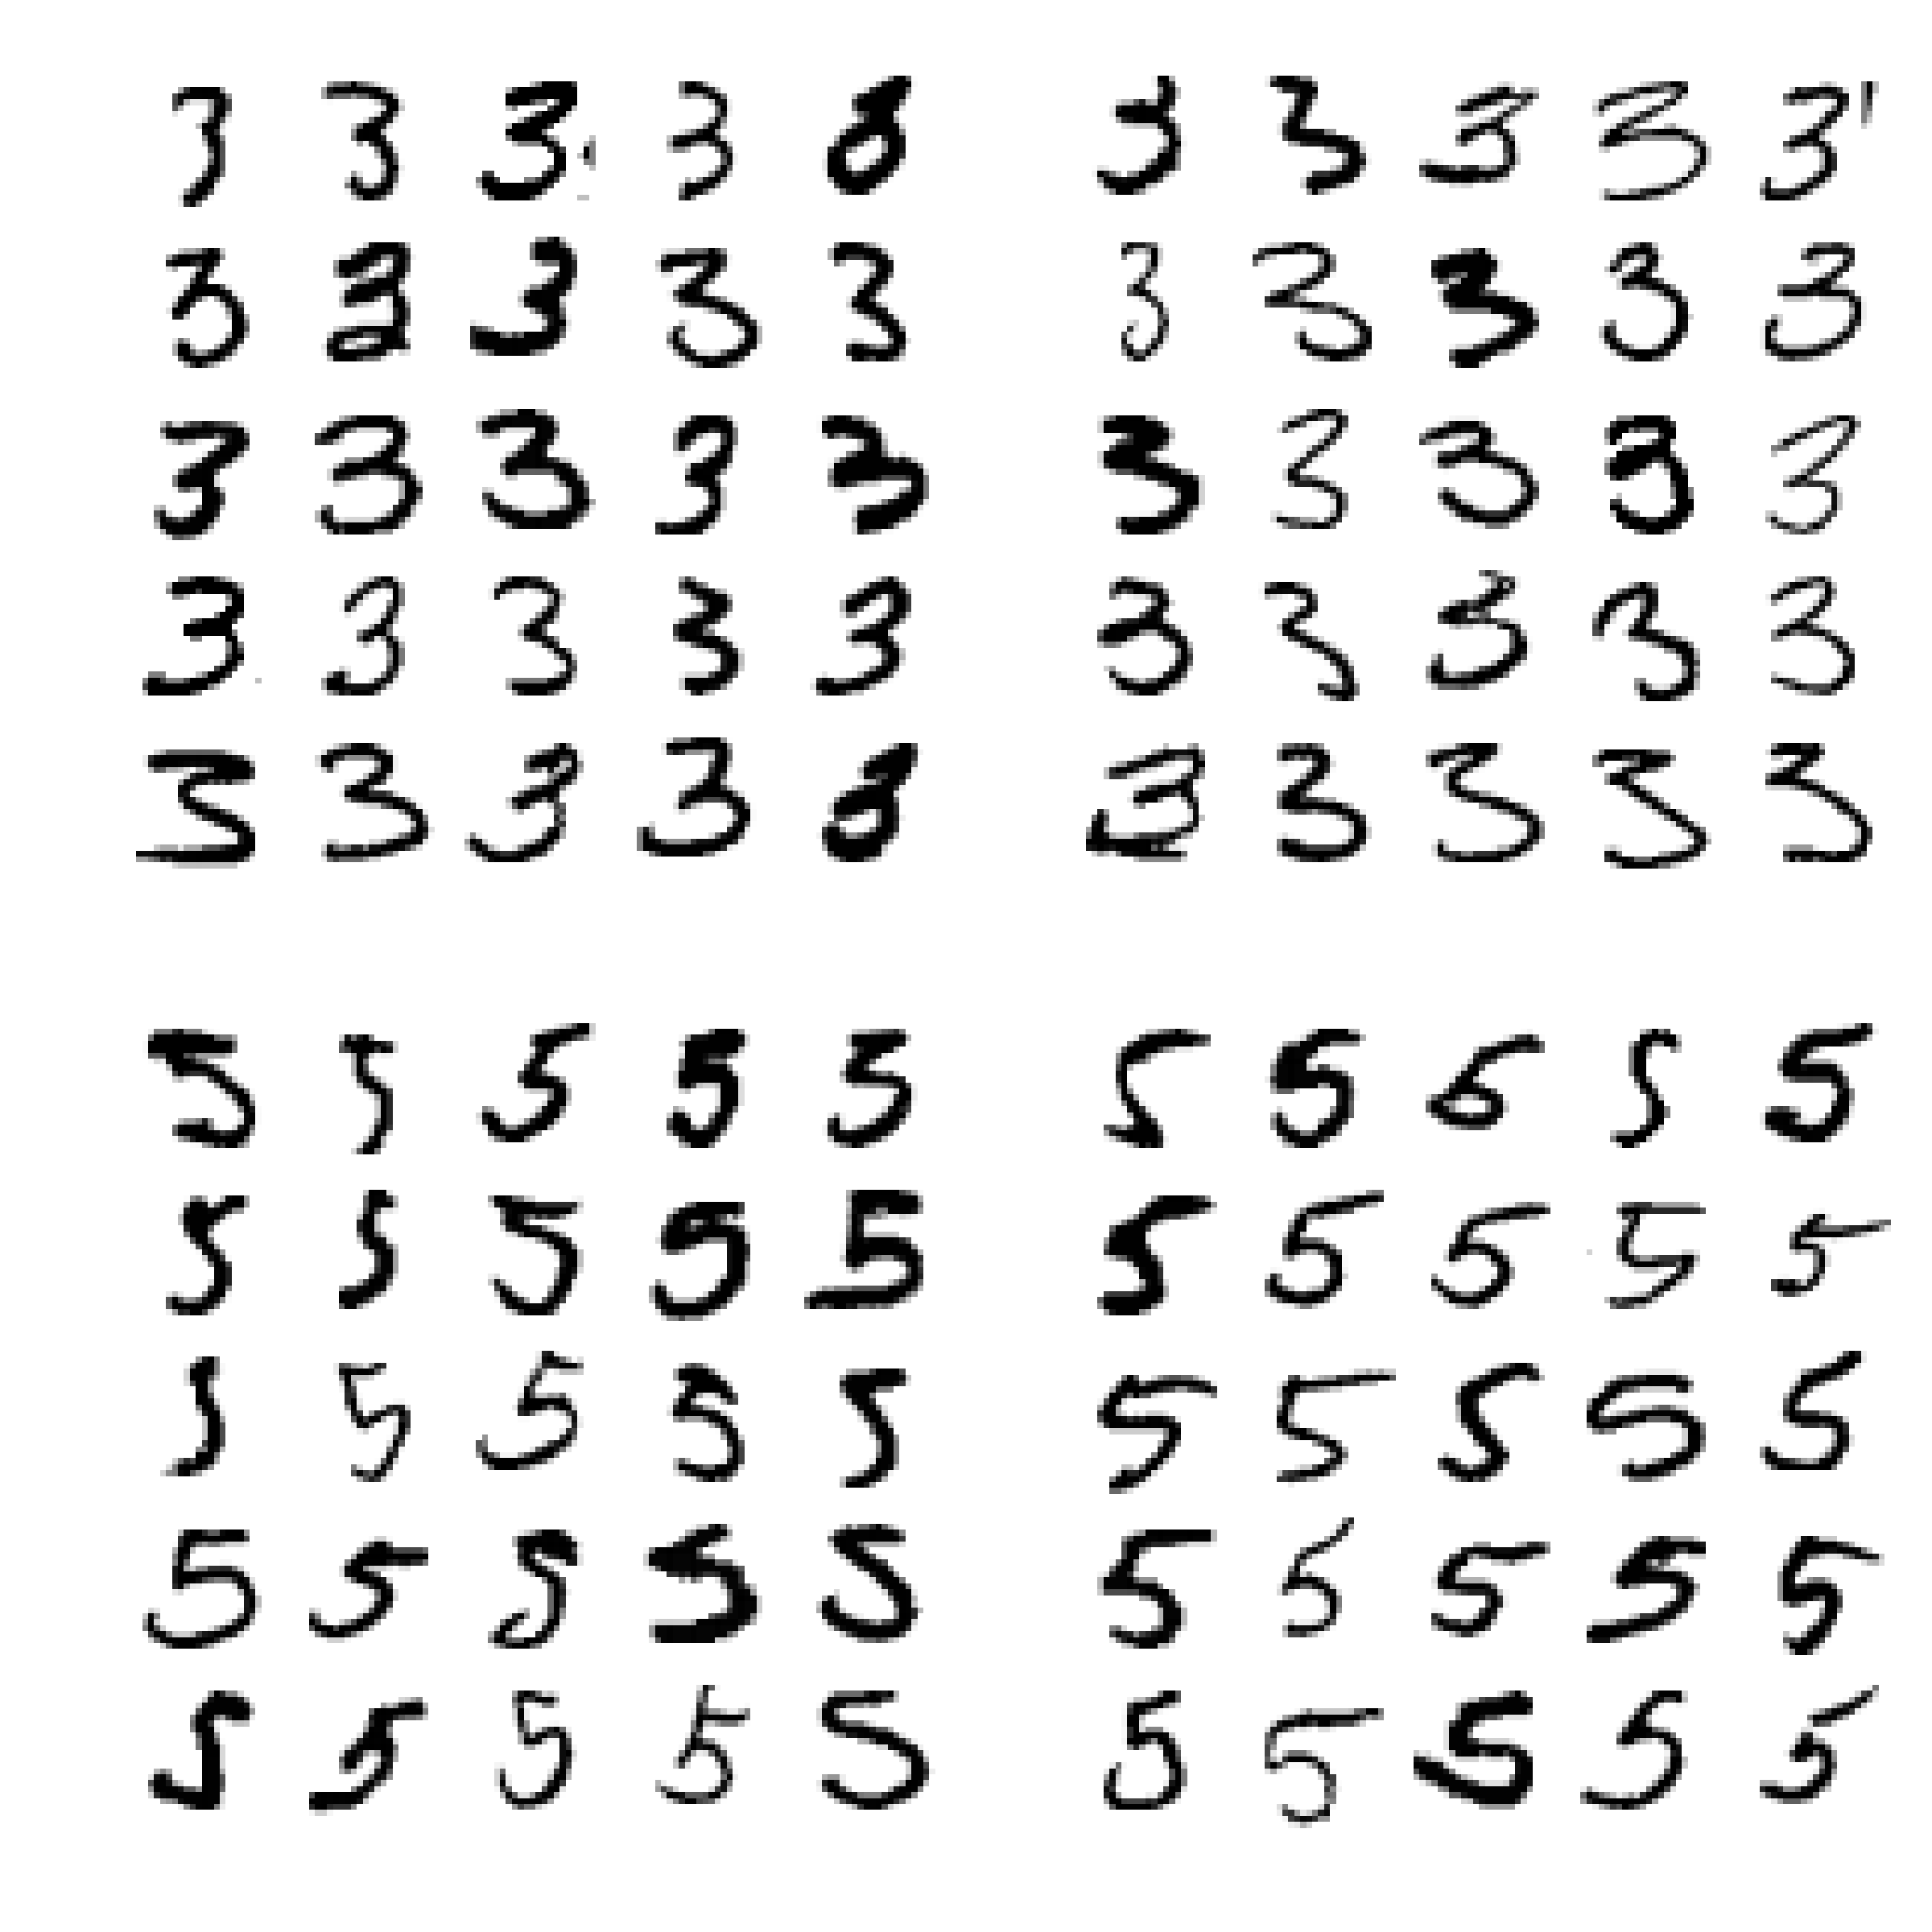 3 3 3 3 3 3 3 3 3
3 3 3 3 3 3 3 3 3 3
3 3 3 3 3 3 3 3 3 3
3 3 3 3 3 3 3 3 3 3
3 3 3 3 3 3 3 3 3
5 5 5 5 5 5 5 5 5
5 5 5 5 5 5 5 5 5 5
5 5 5 5 5 5 5 5 5 5
5 5 5 5 5 5 5 5 5 5
5 5 5 5 5 5 5 5 5 5